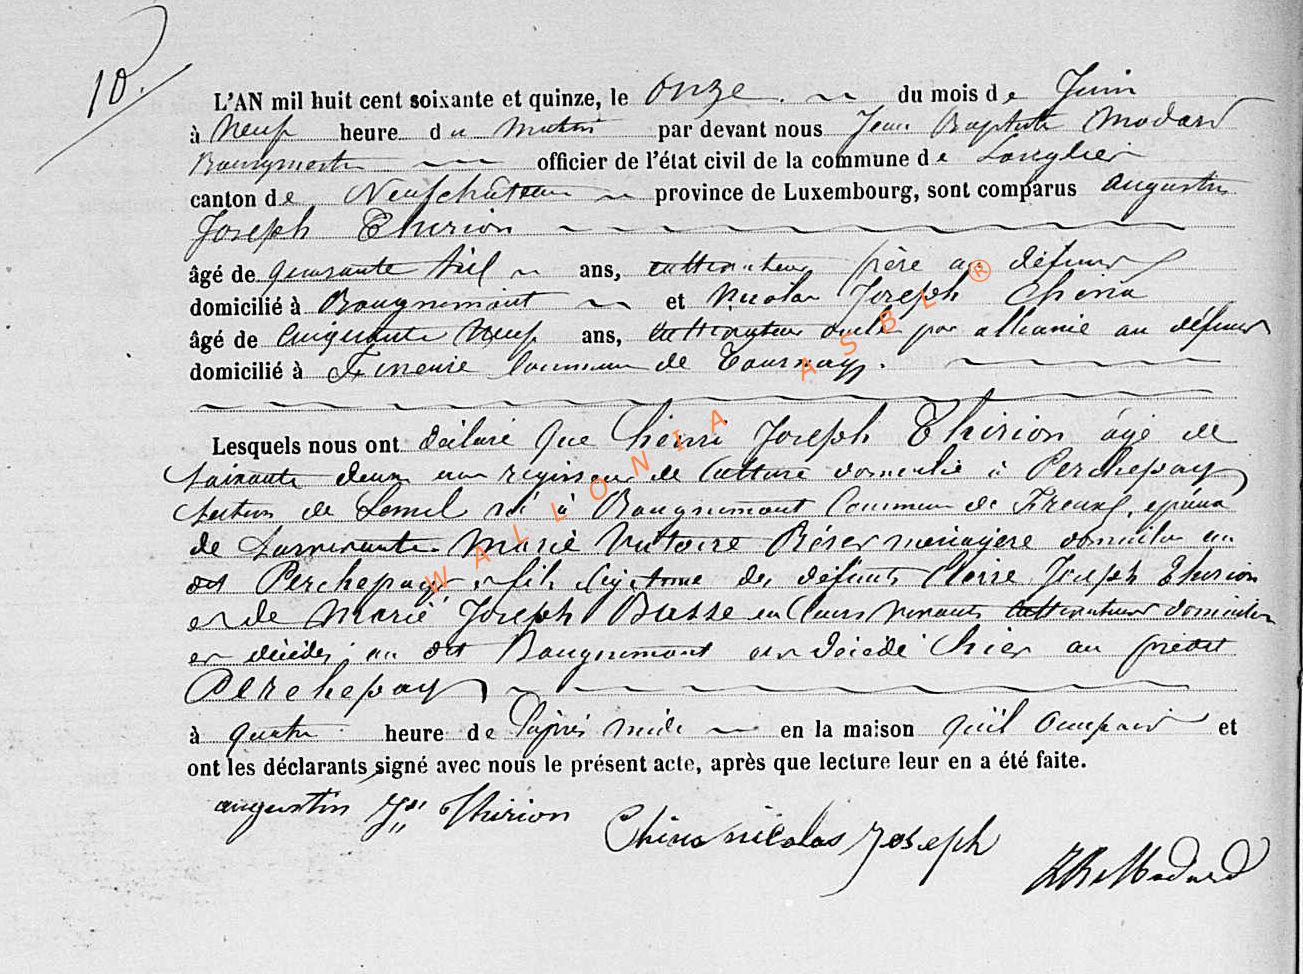 10.
L'AN mil huit cent soixante et quinze, le onze du mois de Juin
à Neuf heure du matin par devant nous Jean Baptiste Modard
Bourgmestre officier de l'état civil de la commune de Longlier
canton de Neufchâteau province de Luxembourg, sont comparus Augustin
Joseph Thirion
âgé de quarante ans, cultivateur frère au défunt
domicilié à Bougnimont et Nicolas Joseph China
âgé de Cinquante Neuf ans, cultivateur oncle par alliance au défunt
domicilié à Fineuse Commune de Tournay.
Lesquels nous ont déclaré que henri Joseph Thirion âgé de
soixante deux ans régisseur de Culture domicilié à Perchepay
section de né à Bougnimont Commune de Freux, époux
de survivante Marie Victoire ménagère domiciliée au
dit Perchepay, et fils légitime des défunts Pierre Joseph Thirion
et de Marie Joseph Busse en leurs vivants cultivateurs domiciliés
et décédés au dit Bougnimont est décédé hier au prédit
Perchepay
à quatre heure de l'après midi en la maison qu'il occupait et
ont les déclarants signé avec nous le présent acte, après que lecture leur en a été faite.
augustin Jph Thirion
China nicolas Joseph
JB Modard
WALLONIA ASBL ®